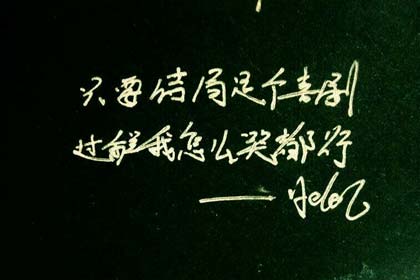 只要结局是个喜剧
过程我怎么哭都行
——